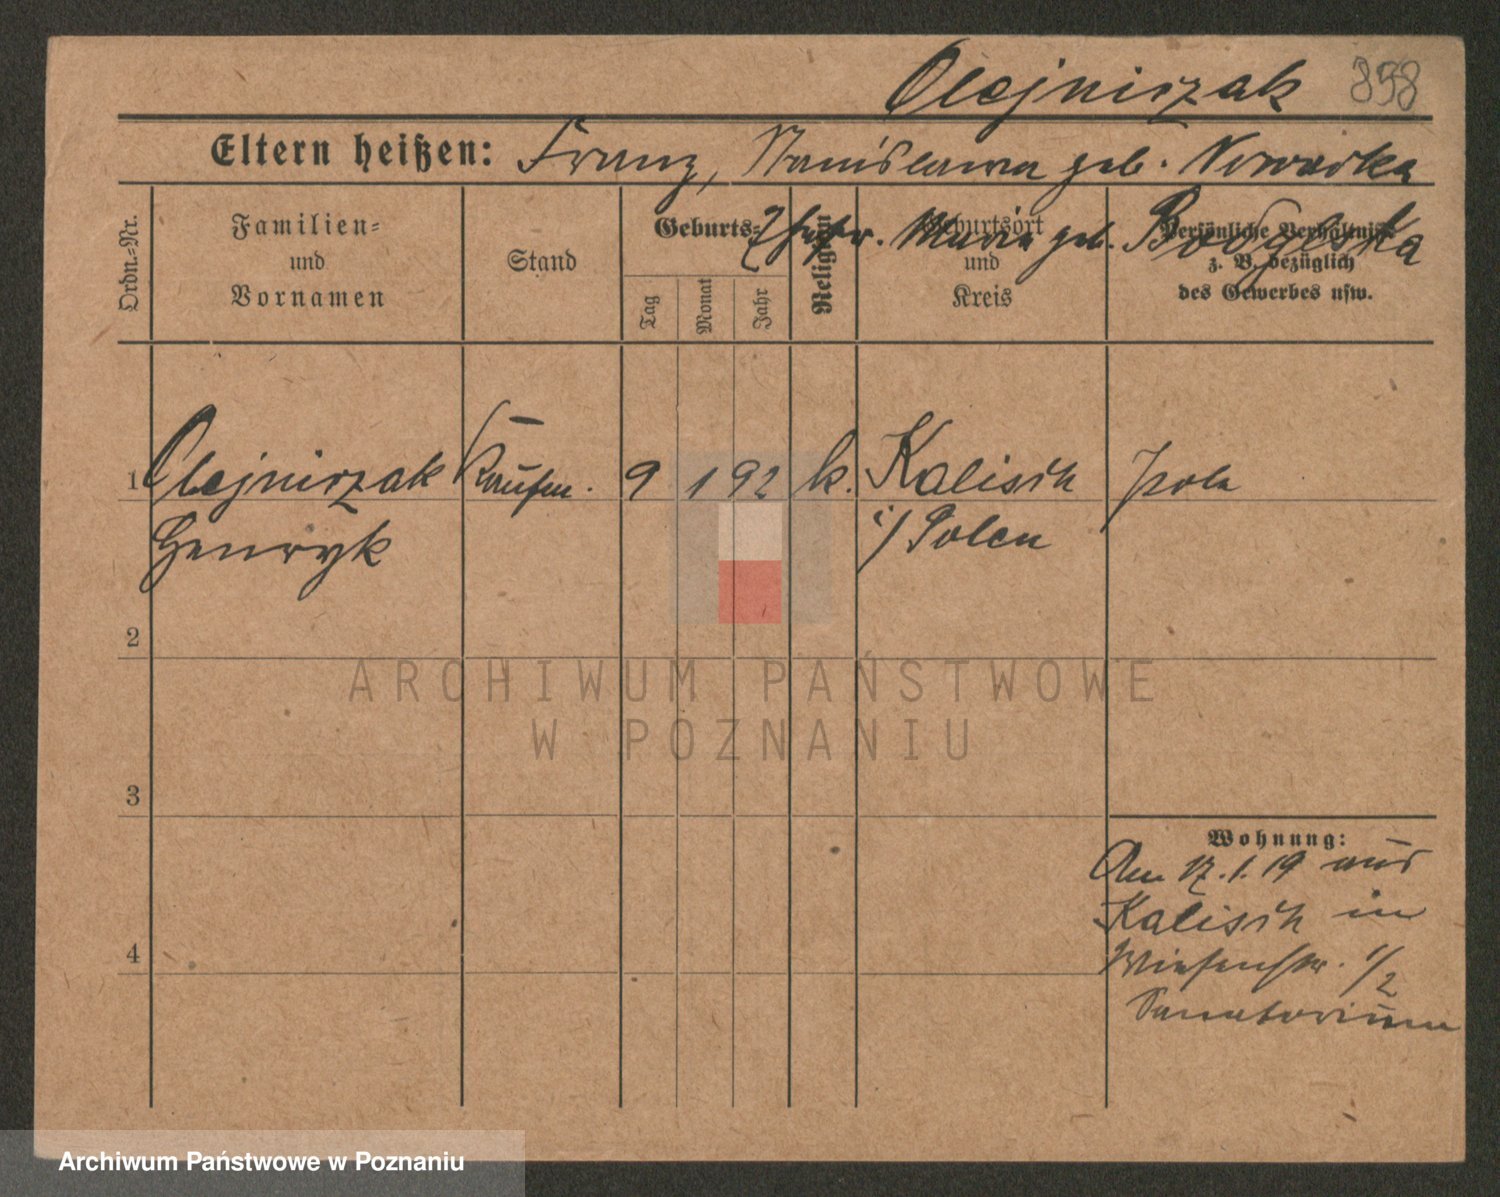 Olejniczak 898
Eltern heißen: Franz, Stanislawa geb. Nowacka
Ehefr. Maria geb.
Ordn.=Nr.
Familien=
und
Vornamen
Stand
Geburts=
Tag
Monat
Jahr
Religion
Geburtsort
und
Kreis
Persönliche Verhältnisse
z. B. bezüglich
des Gewerbes usw.
1 Olejniczak Kaufm. 9 1 92 k. Kalisch Pole
Henryk i/ Polen
2
3
4
Wohnung:
Am 17.1.19 aus
Kalisch in
Wiesenstr. 1/2
Sanatorium
ARCHIWUM PAŃSTWOWE
W POZNANIU
Archiwum Państwowe w Poznaniu